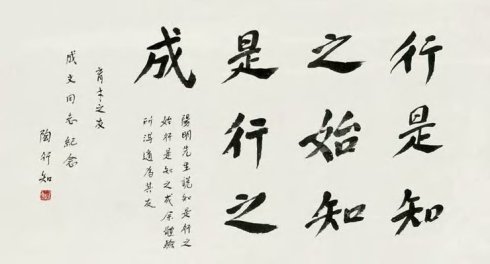 行是知
之始知
是行之
成
陽明先生說知是行之
始行是知之成余體驗
所得適為其反
育才之友
成文同志 紀念
陶行知